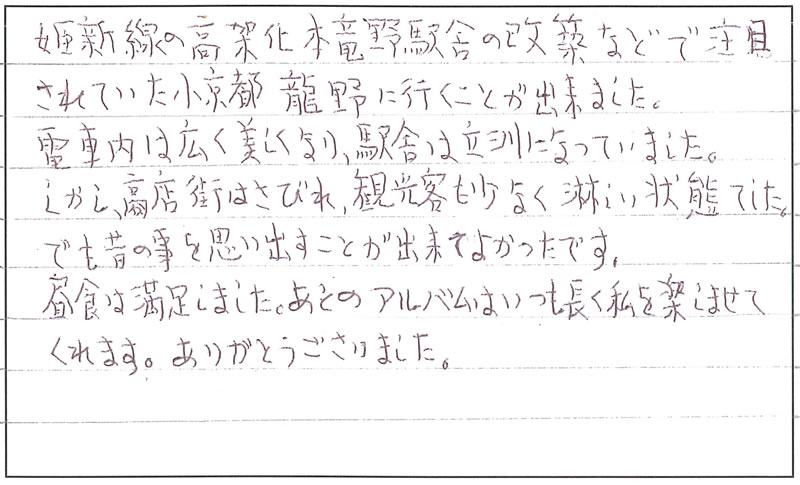 姫新線の高架化本竜野駅舎の改築などで注目
されていた小京都 龍野に行くことが出来ました。
電車内は広く美しくなり、駅舎は立派になっていました。
しかし、商店街はさびれ、観光客も少なく淋しい状態でした。
でも昔の事を思い出すことが出来てよかったです。
昼食は満足しました。あとのアルバムはいつも長く私を楽しませて
くれます。ありがとうございました。